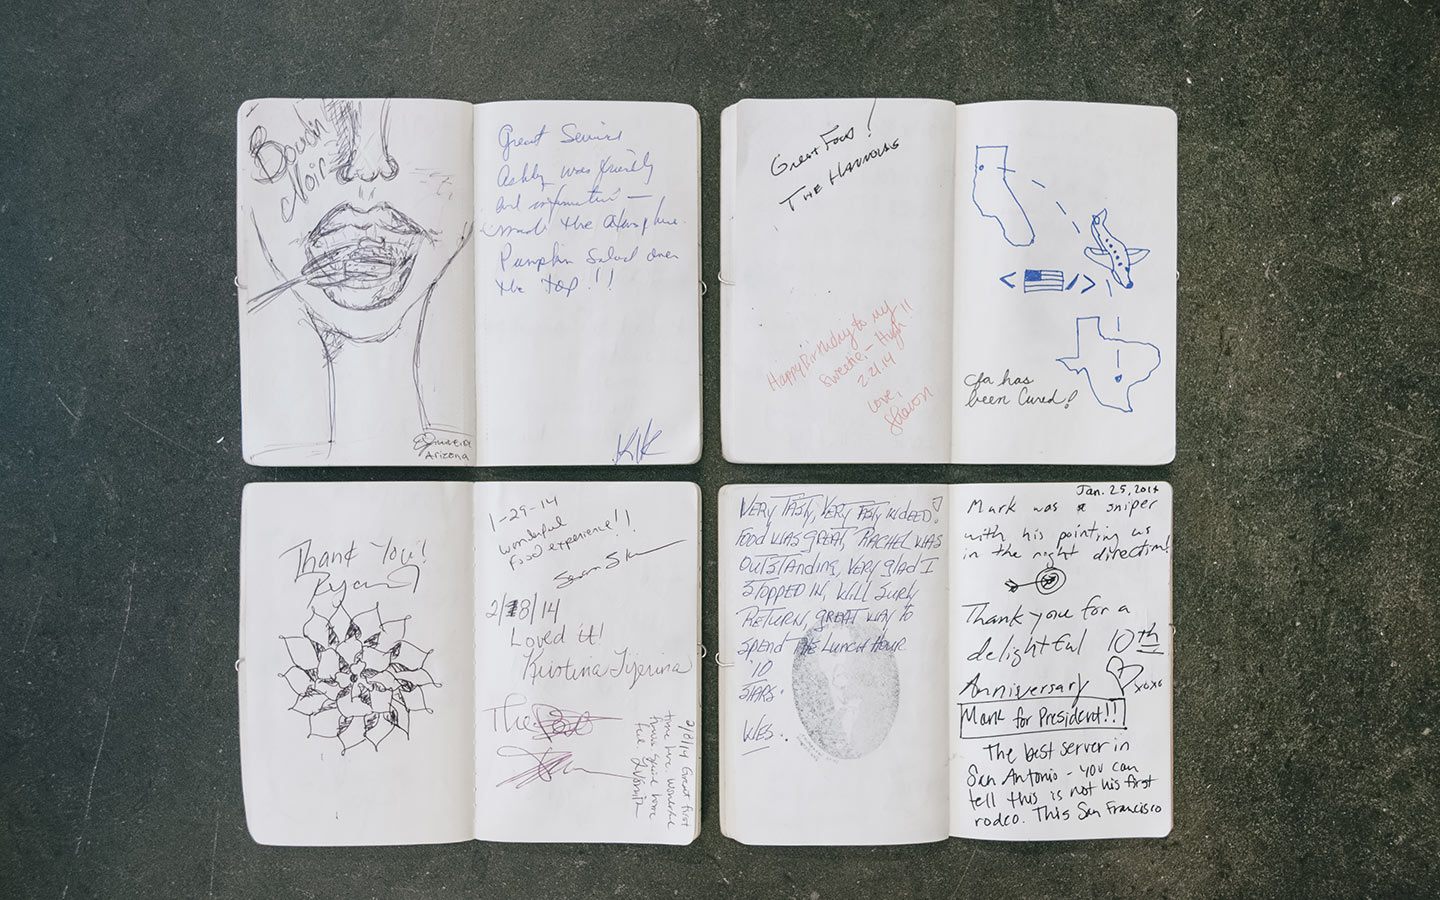 Great Service
Ashley was friendly
and
made the
Pumpkin Salad over
the top!!
Arizona
Great Food!
The
Happy Birthday to my
Sweetie, – Hugh!!
2.21.14
Love,
Sharon
< />
cfa has
been Cured!
Thank You!
Ryan
1-29-14
wonderful
food experience!!
Susan
2/18/14
Loved it!
Kristina Tijerina
The
2/8/14 Great first
time here. Wonderful
Very Tasty, Very Tasty indeed!
Food was great, Rachel was
outstanding, very glad I
stopped in, will surly
return, great way to
spend the lunch hour
10
stars.
Wes..
Jan. 25, 2014
Mark was a sniper
with his pointing us
in the right direction!
Thank you for a
delightful 10th
Anniversary
xoxo
Mark for President!!
The best server in
San Antonio – you can
tell this is not his first
rodeo. This San Francisco